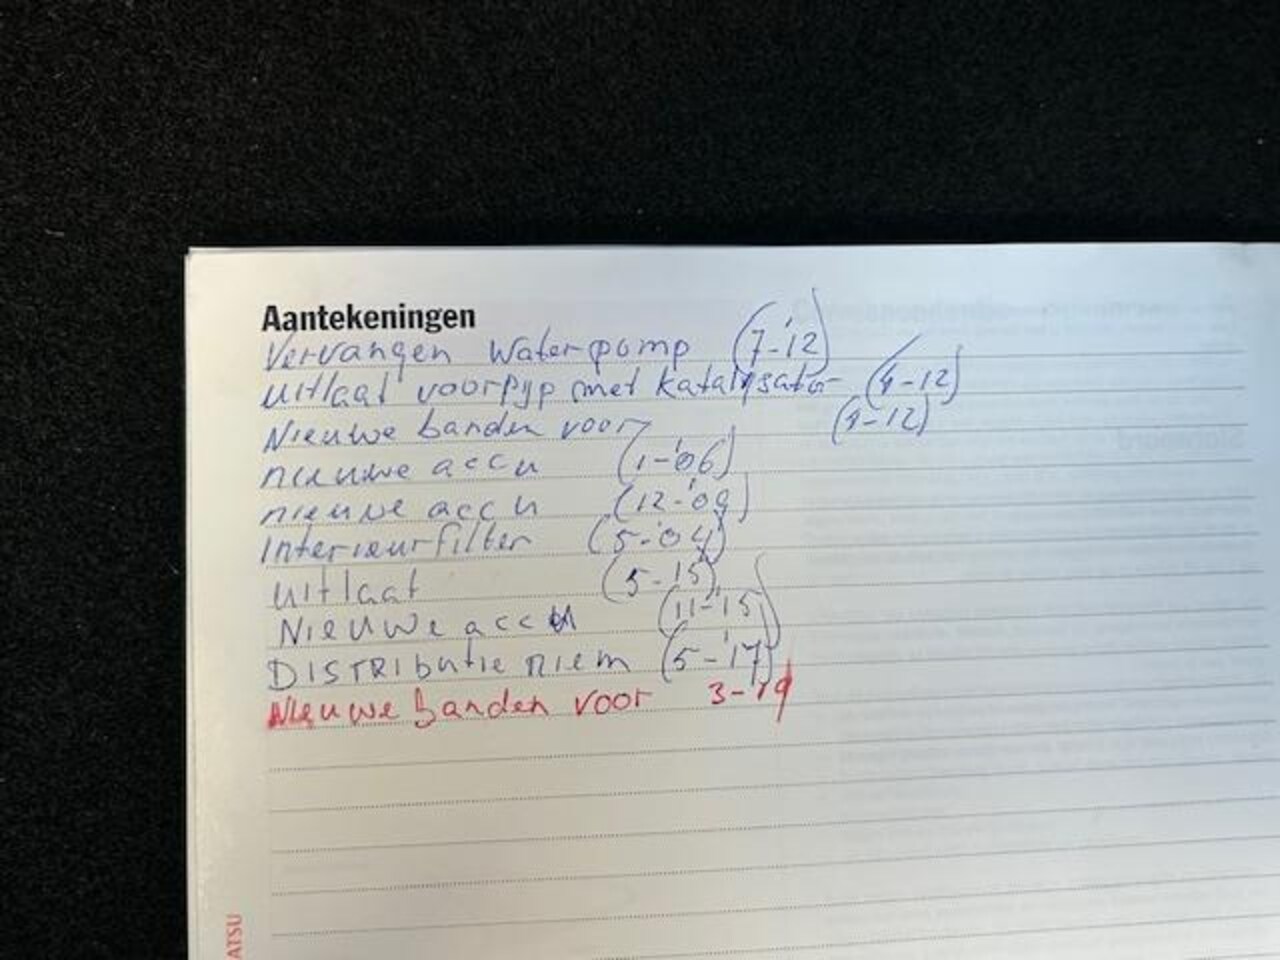 Aantekeningen
Vervangen Waterpomp (7-'12)
uitlaat voorpijp met katalysator (4-12)
Nieuwe banden voor (4-12)
nieuwe accu (1-'06)
nieuwe accu (12-'09)
Interieurfilter (5-'04)
uitlaat (5-15)
Nieuwe accu (11-'15)
DISTRIbutie riem (5-'17)
Nieuwe banden voor 3-'19
ATSU